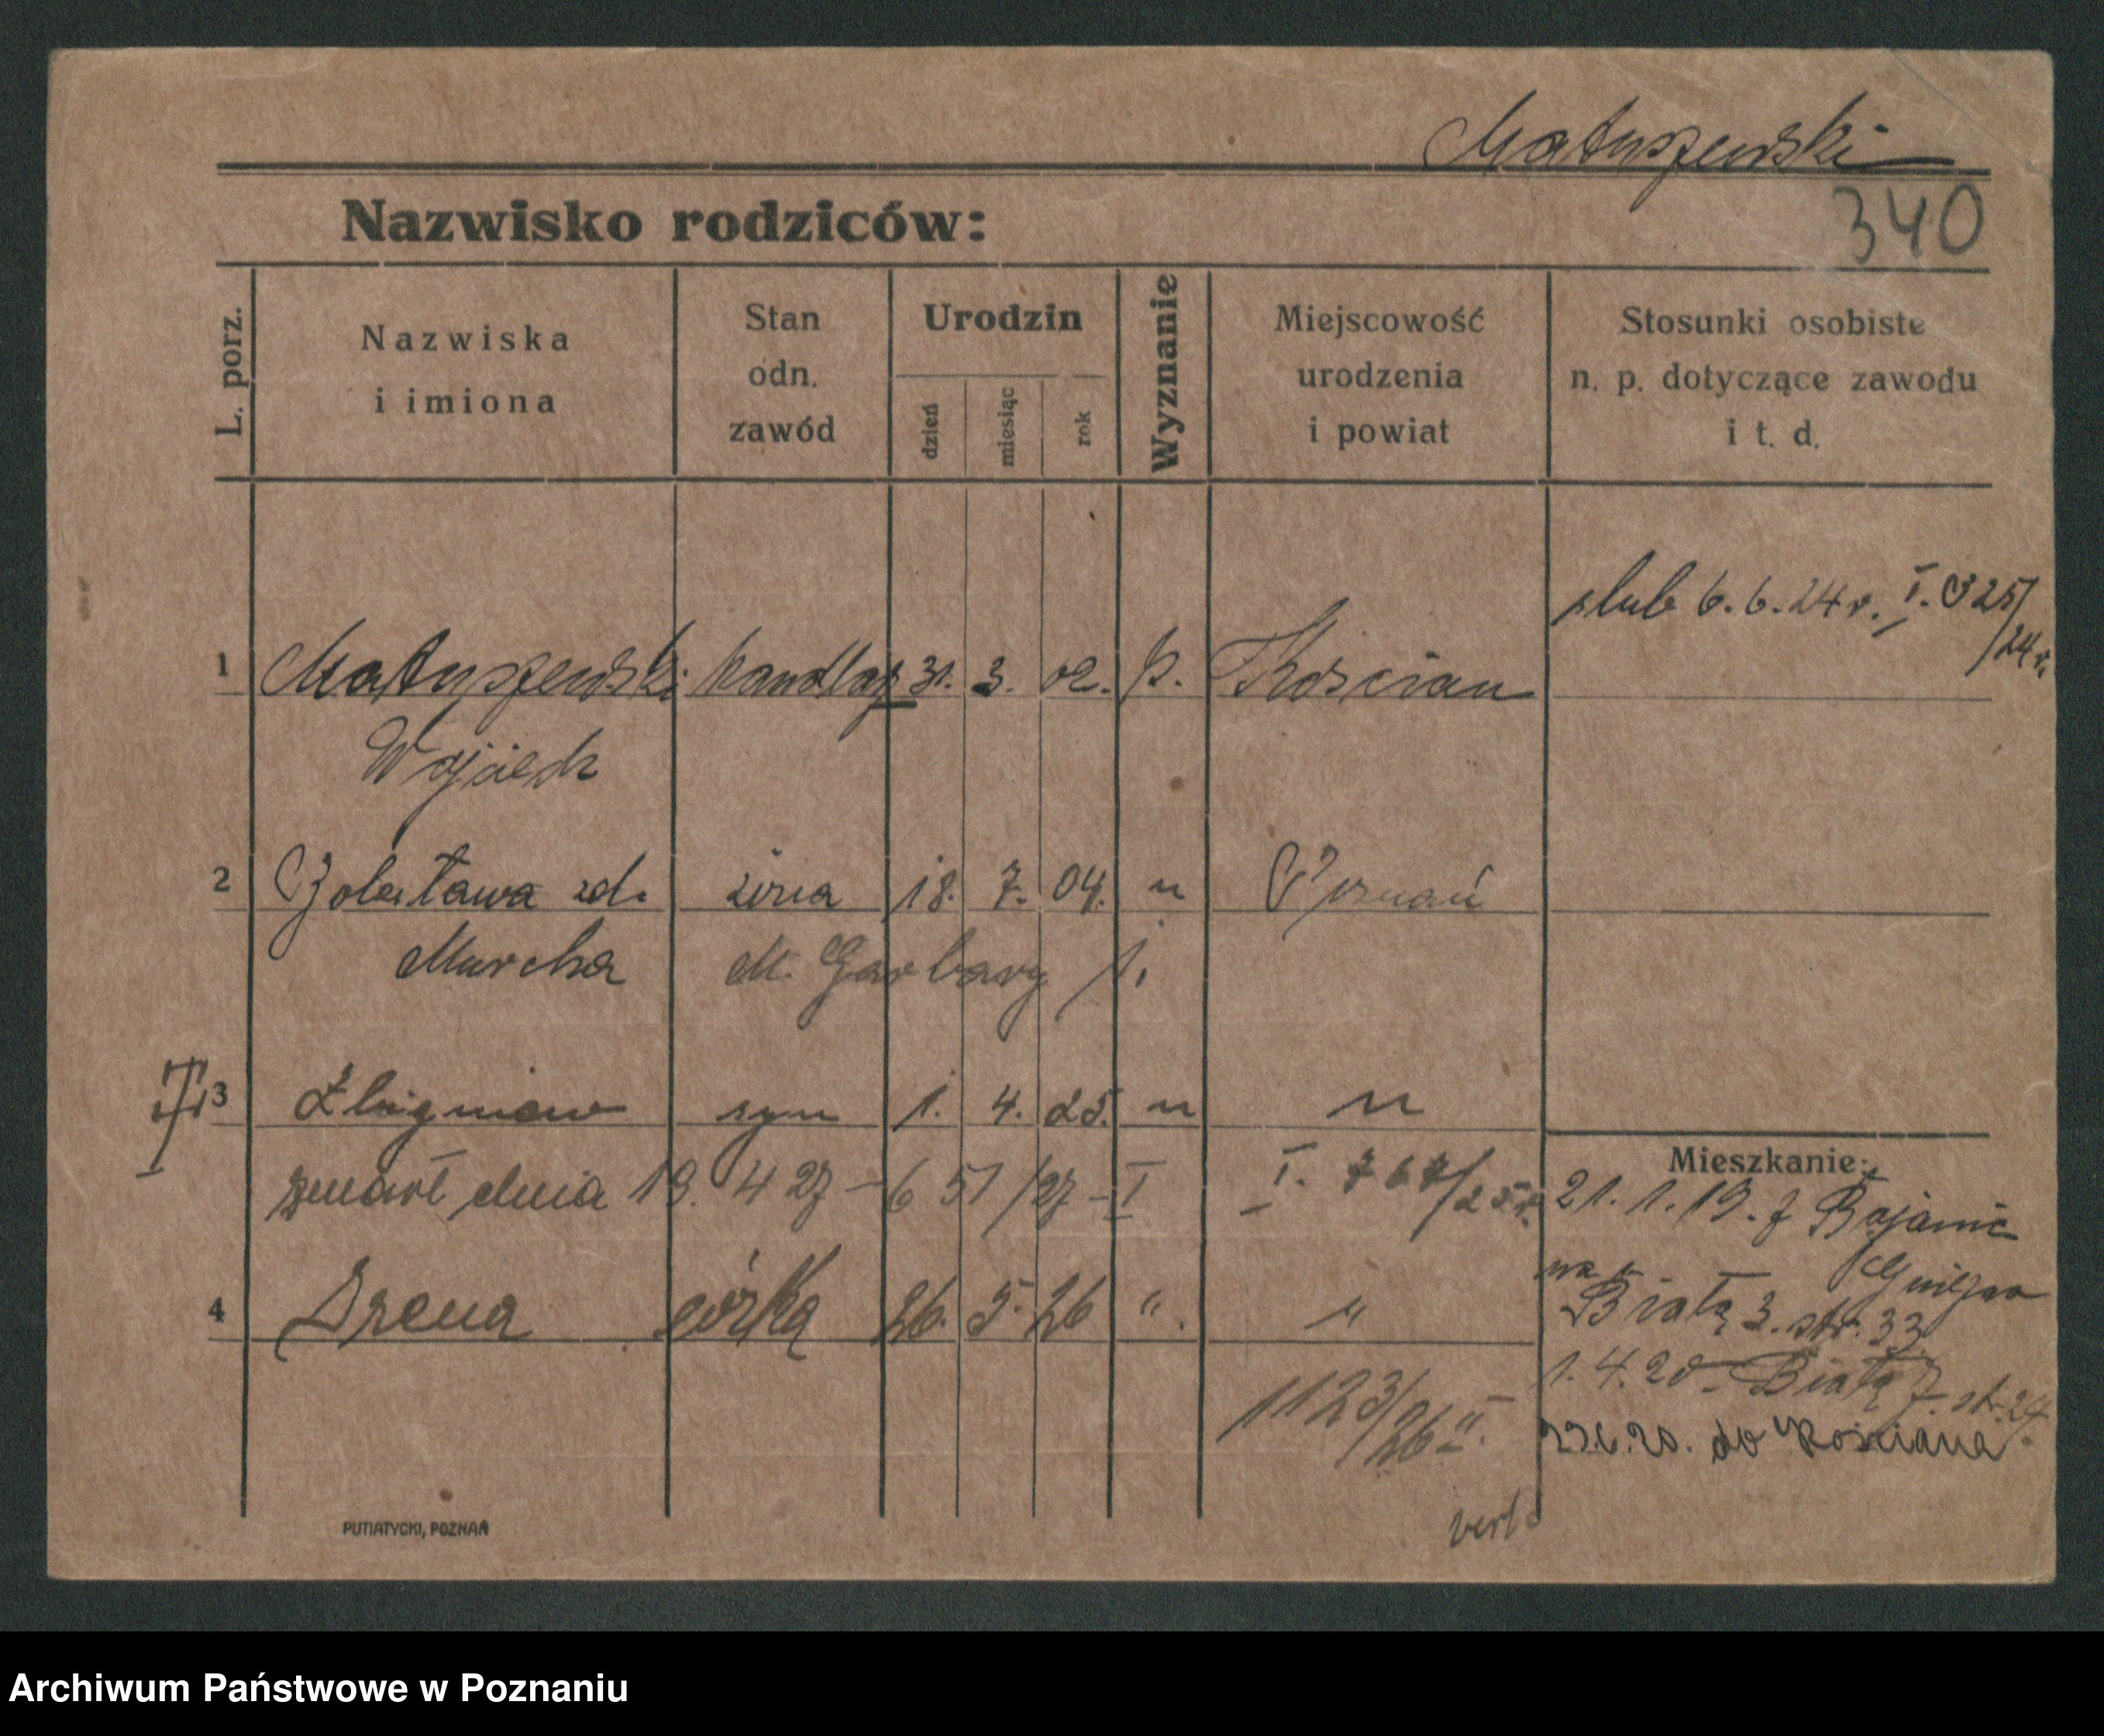 Matuszewski
340
Nazwisko rodziców:
L. porz.
Nazwiska i imiona
Stan odn. zawód
Urodzin
dzień
miesiąc
rok
Wyznanie
Miejscowość urodzenia i powiat
Stosunki osobiste n. p. dotyczące zawodu i t. d.
ślub 6. 6. 24 r. I. 1325/24 r.
1 Matuszewski handlarz 31. 3. 02. k. Kościan
Wojciech
2 Bolesława zd. żona 18. 7. 04. " Poznań
Murcha M. Garbary 1.
3 Zbigniew syn 1. 4. 25. " "
zmarł dnia 19. 4 27 - 651/27 - I I. 767/25 r.
4 Irena córka 26. 5. 26 " . "
1123/26 II.
Mieszkanie:
21. 1. 19. z Bojanic
Gniezno
na Białą 3. str. 33
1. 4. 20. Białą 7. st. 24
23.6.20. do Kościana
vert
PUTIATYCKI, POZNAŃ
Archiwum Państwowe w Poznaniu